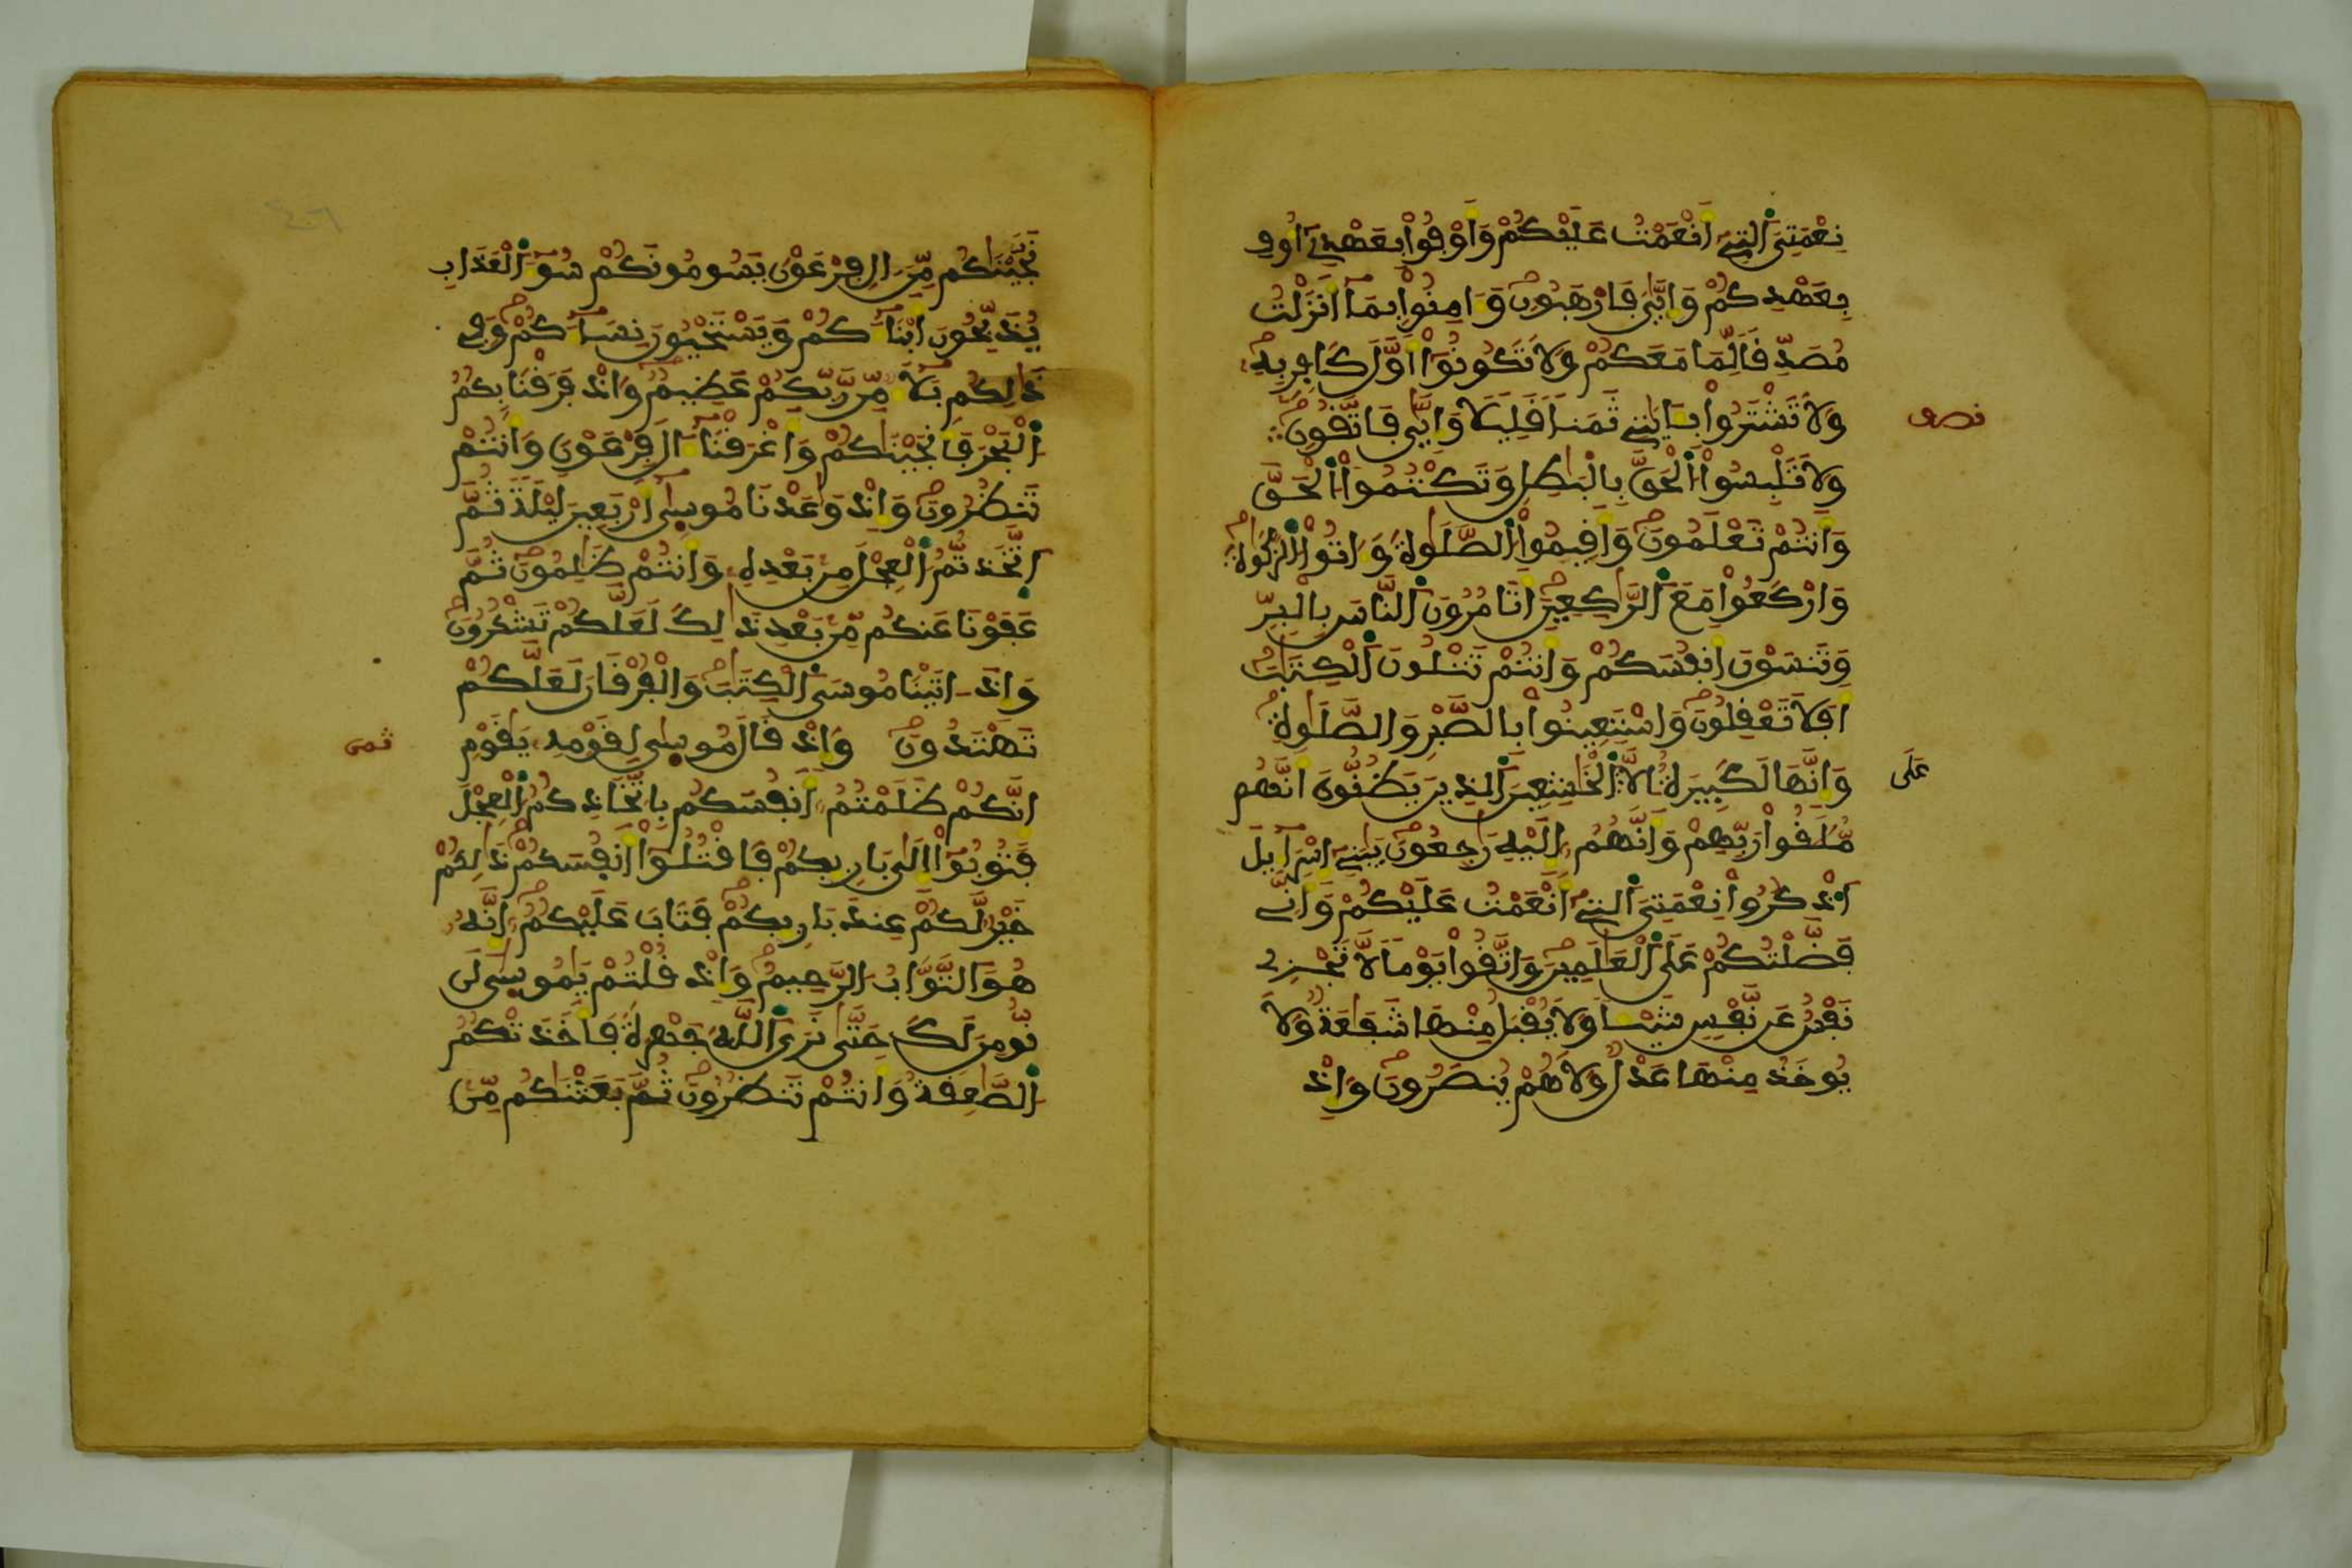 نِعْمَتِيَ اَلتِے أَنْعَمْتُ عَلَيْكُمْ وَأَوْفُواْ بِعَهْدِے أُوفِ
بِعَهْدِكُمْ وَإِيَّٰيَ فَارْهَبُونِ وَءَامِنُواْ بِمَا أَنزَلْتُ
مُصَدِّقاً لِّمَا مَعَكُمْ وَلَا تَكُونُواْ أَوَّلَ كَافِرٍ بِهِ
وَلَا تَشْتَرُواْ بِـَٔايَٰتِے ثَمَناً قَلِيلاً وَإِيَّٰيَ فَاتَّقُونِ
نصف
وَلَا تَلْبِسُواْ اُلْحَقَّ بِالْبَٰطِلِ وَتَكْتُمُواْ اُلْحَقَّ
وَأَنتُمْ تَعْلَمُونَ وَأَقِيمُواْ اُلصَّلَوٰةَ وَءَاتُواْ اُلزَّكَوٰةَ
وَارْكَعُواْ مَعَ اَلرَّٰكِعِينَ أَتَامُرُونَ اَلنَّاسَ بِالْبِرِّ
وَتَنسَوْنَ أَنفُسَكُمْ وَأَنتُمْ تَتْلُونَ اَلْكِتَٰبَ
أَفَلَا تَعْقِلُونَ وَاسْتَعِينُواْ بِالصَّبْرِ وَالصَّلَوٰةِ
وَإِنَّهَا لَكَبِيرَةٌ اِلَّا عَلَى اَلْخَٰشِعِينَ اَلذِينَ يَظُنُّونَ أَنَّهُم
مُّلَٰقُواْ رَبِّهِمْ وَأَنَّهُمُ إِلَيْهِ رَٰجِعُونَ يَٰبَنِے إِسْرَآءِيلَ
اَذْكُرُواْ نِعْمَتِيَ اَلتِے أَنْعَمْتُ عَلَيْكُمْ وَأَنِّے
فَضَّلْتُكُمْ عَلَى اَلْعَٰلَمِينَ وَاتَّقُواْ يَوْماً لَّا تَجْزِے
نَفْسٌ عَن نَّفْسٍ شَيْـٔاً وَلَا يُقْبَلُ مِنْهَا شَفَٰعَةٌ وَلَا
يُوخَذُ مِنْهَا عَدْلٌ وَلَا هُمْ يُنصَرُونَ وَإِذْ
نَجَّيْنَٰكُم مِّنَ اٰلِ فِرْعَوْنَ يَسُومُونَكُمْ سُوٓءَ اَلْعَذَابِ
يُذَبِّحُونَ أَبْنَآءَكُمْ وَيَسْتَحْيُونَ نِسَآءَكُمْ وَفِے
ذَٰلِكُم بَلَآءٌ مِّن رَّبِّكُمْ عَظِيمٌ وَإِذْ فَرَقْنَا بِكُمُ
اُلْبَحْرَ فَأَنجَيْنَٰكُمْ وَأَغْرَقْنَا ءَالَ فِرْعَوْنَ وَأَنتُمْ
تَنظُرُونَ وَإِذْ وَٰعَدْنَا مُوسَىٰ أَرْبَعِينَ لَيْلَةً ثُمَّ
اَتَّخَذتُّمُ اُلْعِجْلَ مِن بَعْدِهِ وَأَنتُمْ ظَٰلِمُونَ ثُمَّ
عَفَوْنَا عَنكُم مِّن بَعْدِ ذَٰلِكَ لَعَلَّكُمْ تَشْكُرُونَ
وَإِذَ اٰتَيْنَا مُوسَى اَلْكِتَٰبَ وَالْفُرْقَانَ لَعَلَّكُمْ
تَهْتَدُونَ وَإِذْ قَالَ مُوسَىٰ لِقَوْمِهِ يَٰقَوْمِ
ثمن
إِنَّكُمْ ظَلَمْتُمُ أَنفُسَكُم بِاتِّخَاذِكُمُ اُلْعِجْلَ
فَتُوبُواْ إِلَىٰ بَارِئِكُمْ فَاقْتُلُواْ أَنفُسَكُمْ ذَٰلِكُمْ
خَيْرٌ لَّكُمْ عِندَ بَارِئِكُمْ فَتَابَ عَلَيْكُمُ إِنَّهُ
هُوَ اَلتَّوَّابُ اُلرَّحِيمُ وَإِذْ قُلْتُمْ يَٰمُوسَىٰ لَن
نُّومِنَ لَكَ حَتَّىٰ نَرَى اَللَّهَ جَهْرَةً فَأَخَذَتْكُمُ
اُلصَّٰعِقَةُ وَأَنتُمْ تَنظُرُونَ ثُمَّ بَعَثْنَٰكُم مِّن